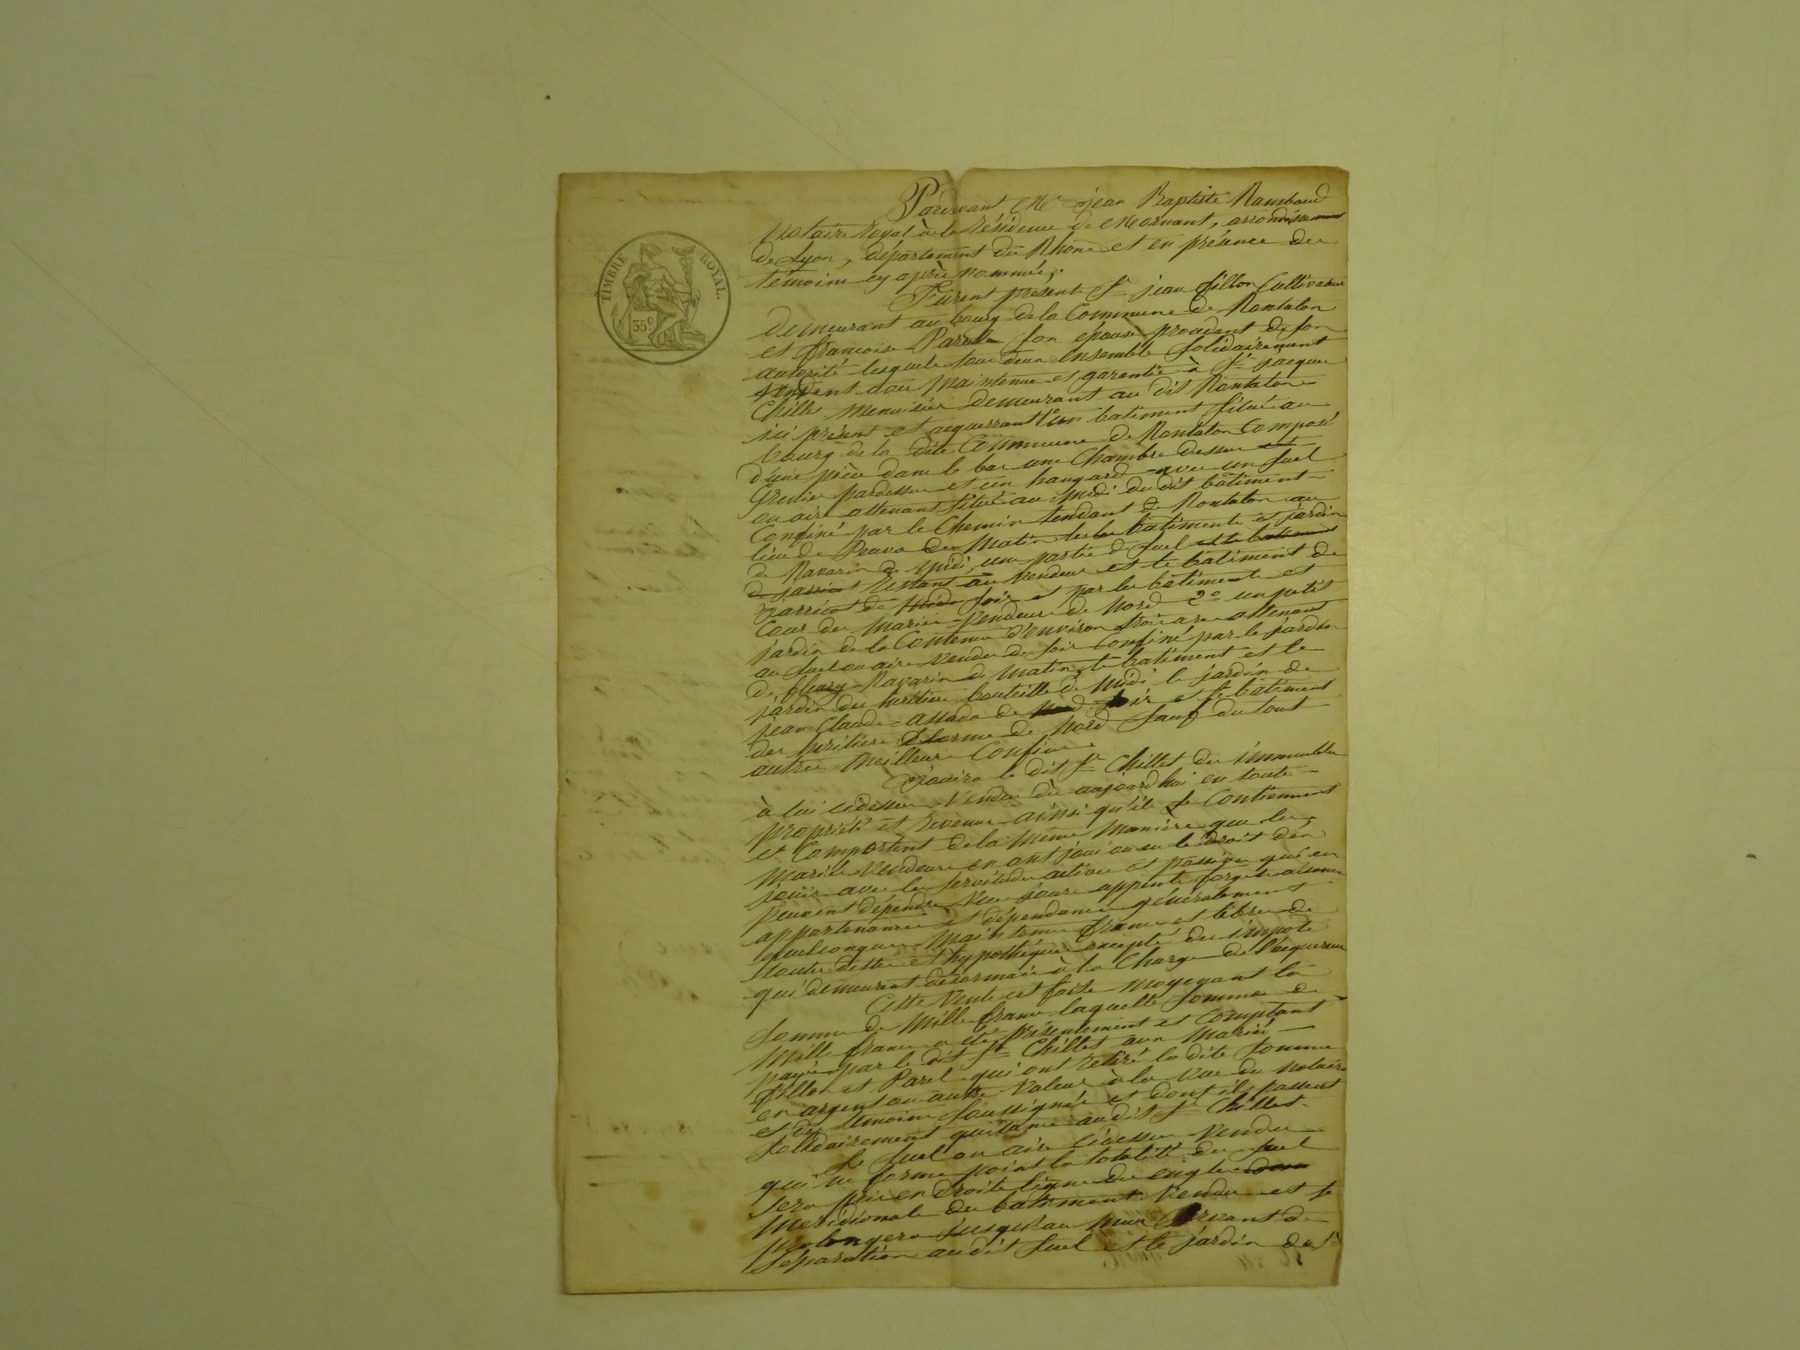 TIMBRE ROYAL.
35c
Pardevant Me jean Baptiste Rambaud
Notaire Royal à la résidence de Mornant, arrondissement
de Lyon, département du Rhône et en présence des
témoins cy après nommés,
Furent présents Sr jean fillon Cultivateur
demeurant au bourg de la Commune de Rontalon
et françoise Parel son épouse procédant de son
autorité lesquels tous deux Ensemble Solidairement
vendent avec Maintenue et garentie à Sr jacques
Chillet Menuisier demeurant au dit Rontalon
ici présent et acquerreur 1° un batiment situé au
bourg de la dite Commune de Rontalon Composé
d'une pièce dans le bas une Chambre dessus et
Grenier pardessus et un hangard avec un suel
ou aire attenant situé au midi du dit bâtiment
Confiné par le Chemin tendant de Rontalon au
lieu de de Matin les batiments et jardin
de Ravarin de Midi, une partie de suel et le batiment
restant au vendeur et le bâtiment de
de soir et par les bâtiments et
Cour des Mariés Vendeurs de Nord 2° un petit
jardin de la Contenue d'environ trois ares attenant
au suel ou aire vendu de soir Confiné par le jardin
de fleury Ravarin de Matin, le batiment et le
jardin des héritiers bouteille de Midi le jardin de
jean Claude de soir et le bâtiment
des héritiers de Nord sauf du tout
autres Meilleurs Confins.
Jouira le dit Sr Chillet des immeubles
à lui cidessus Vendus dès aujourd'hui en toute
propriété et revenus ainsi qu'ils se Contiennent
et Comportent de la Même Manière que les
Mariés Vendeurs en ont joui ou eu le droit d'en
jouir avec les servitudes actives et passives qui en
peuvent dépendre Vues jours appents forgets aisances
appartenances et dépendances généralement
quelconques Maintenus francs et libres de
toutes dettes et hypothèques excepté des impôts
qui demeurent désormais à la Charge de l'acquereur
Cette Vente est faite moyenant la
Somme de Mille francs laquelle Somme de
Mille francs a été présentement et Comptant
payée par le dit Sr Chillet aux Mariés
fillon et Parel qui ont retiré la dite Somme
en argent ou autre Valeur à la Vue du notaire
et des témoins soussignés et dont ils passent
Solidairement quittance audit Sr Chillet
Le Suel ou aire cidessus Vendu
qui ne forme point la totalité du Suel
sera pris en droite ligne de l'engle
Méridional du batiment Vendu et se
prolongera jusqu'au Mur servant de
séparation audit Suel et le jardin du Sr